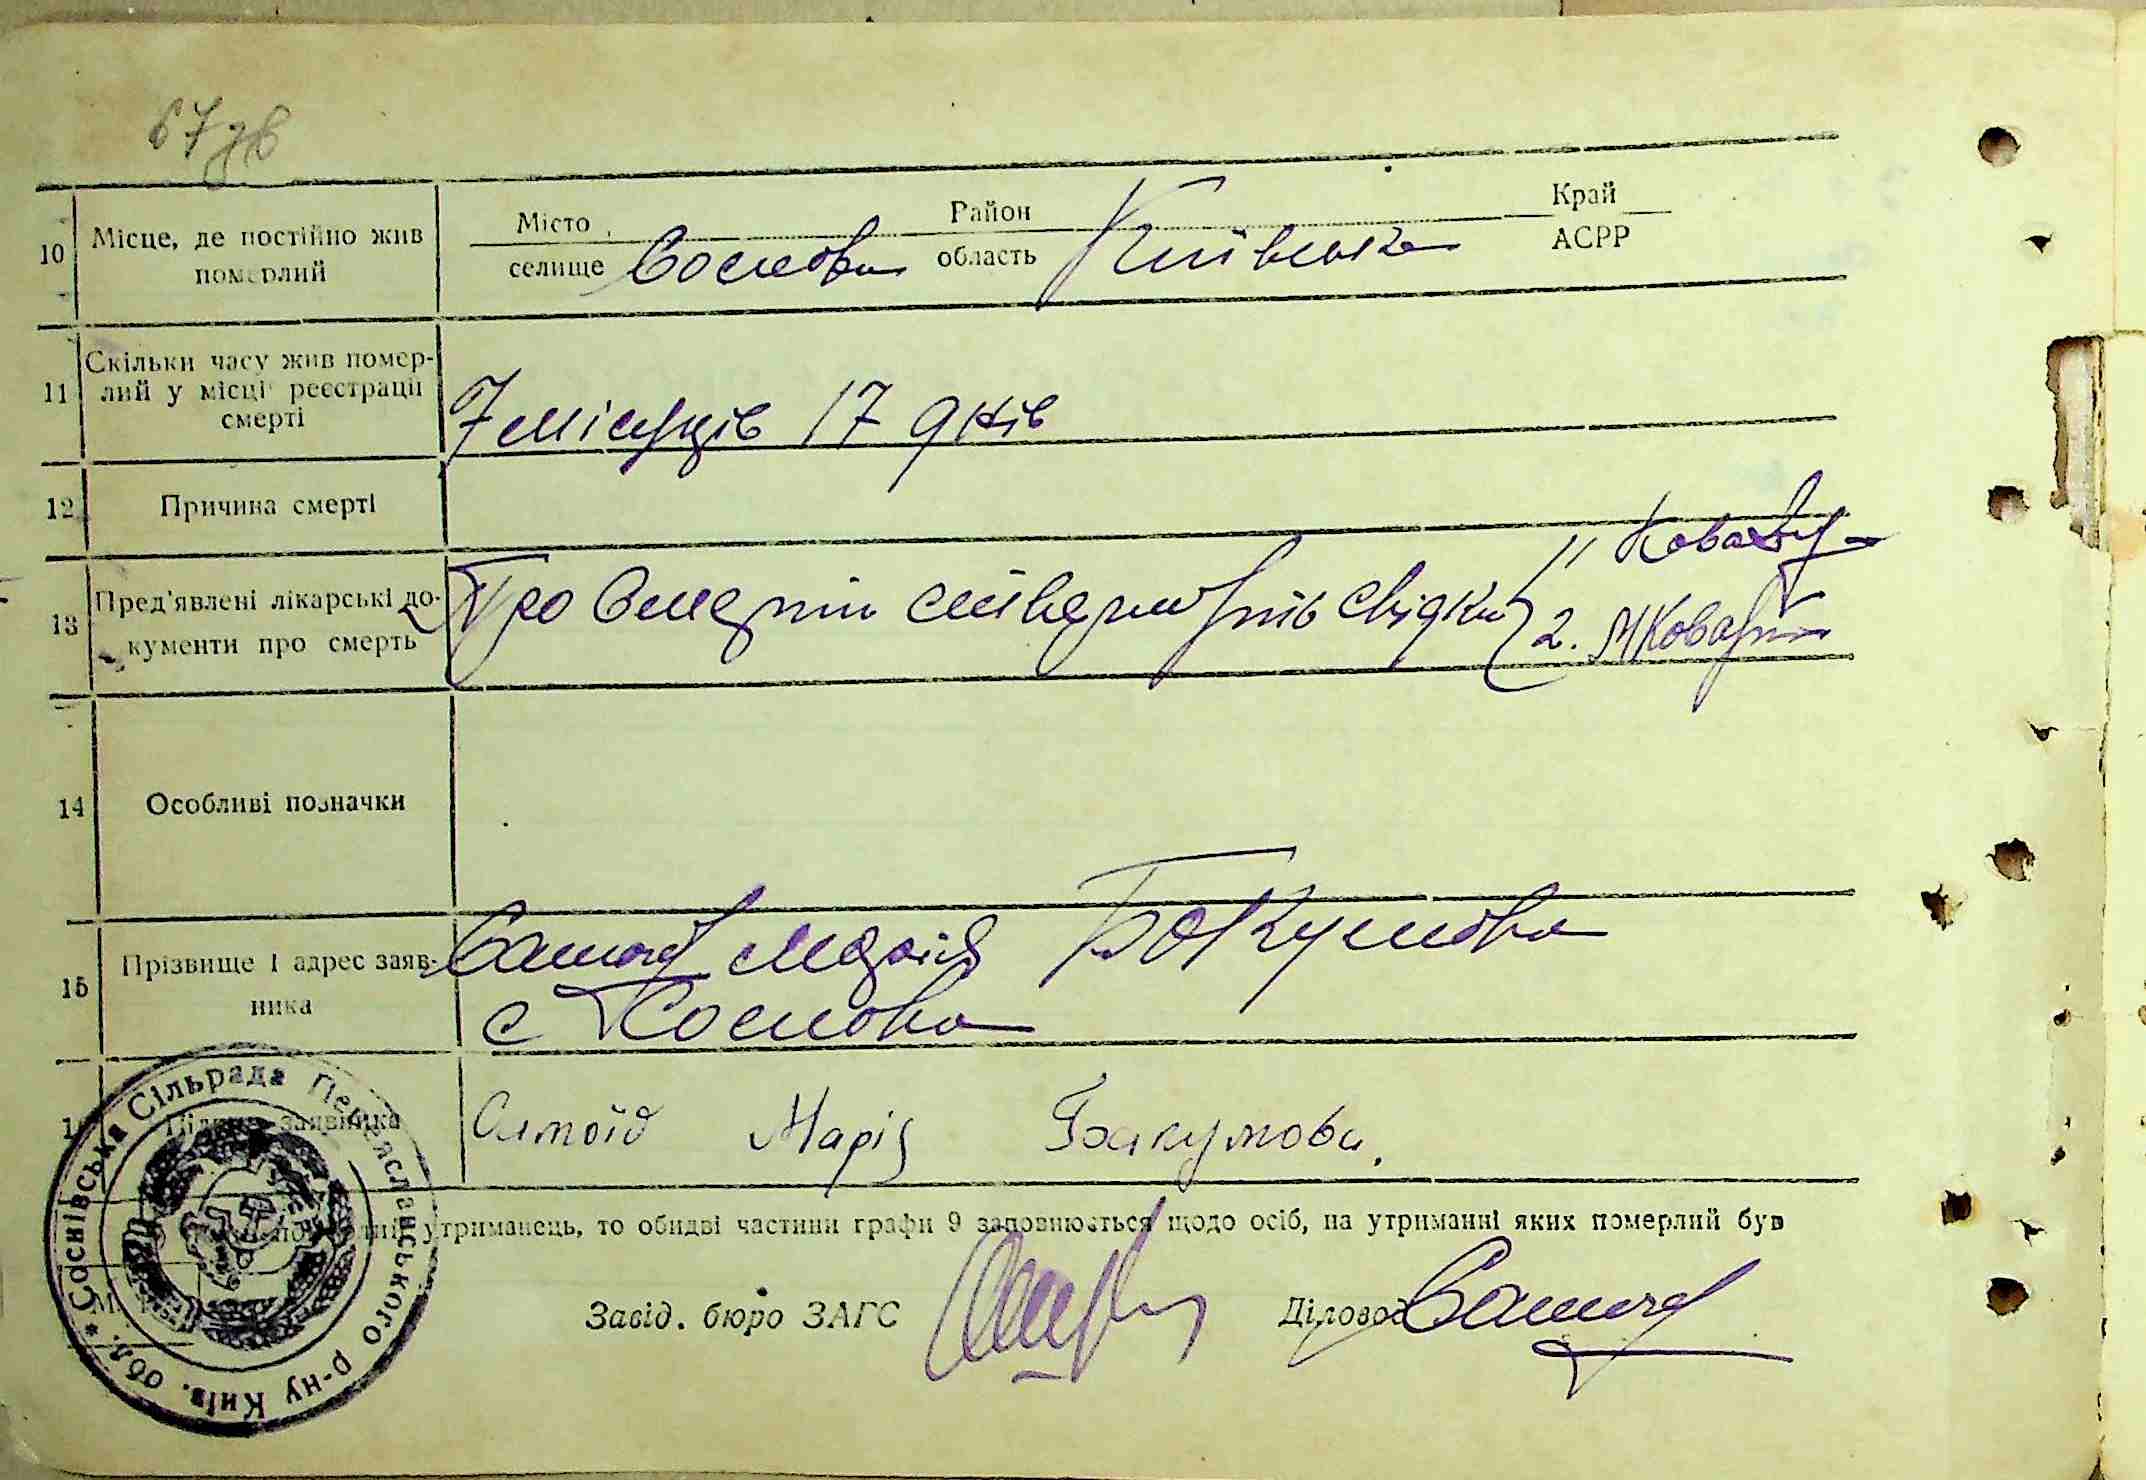 67зв
10 Місце, де постійно жив померлий Місто селище Соснова Район область Київська Край АСРР
11 Скільки часу жив померлий у місці реєстрації смерті 7 місяців 17 днів
12 Причина смерті
13 Пред'явлені лікарські документи про смерть Про смерть свідки 1) 2. МКоваль
14 Особливі позначки
15 Прізвище і адрес заявника Марія Бокумовна
с Соснова
16 Підпис заявника Марія Бакумовна.
утриманець, то обидві частини графи 9 заповнюється щодо осіб, на утриманні яких померлий був
М.
Завід. бюро ЗАГС Діловод
* Соснівська Сільрада Переяславського р-ну Київ. обл.